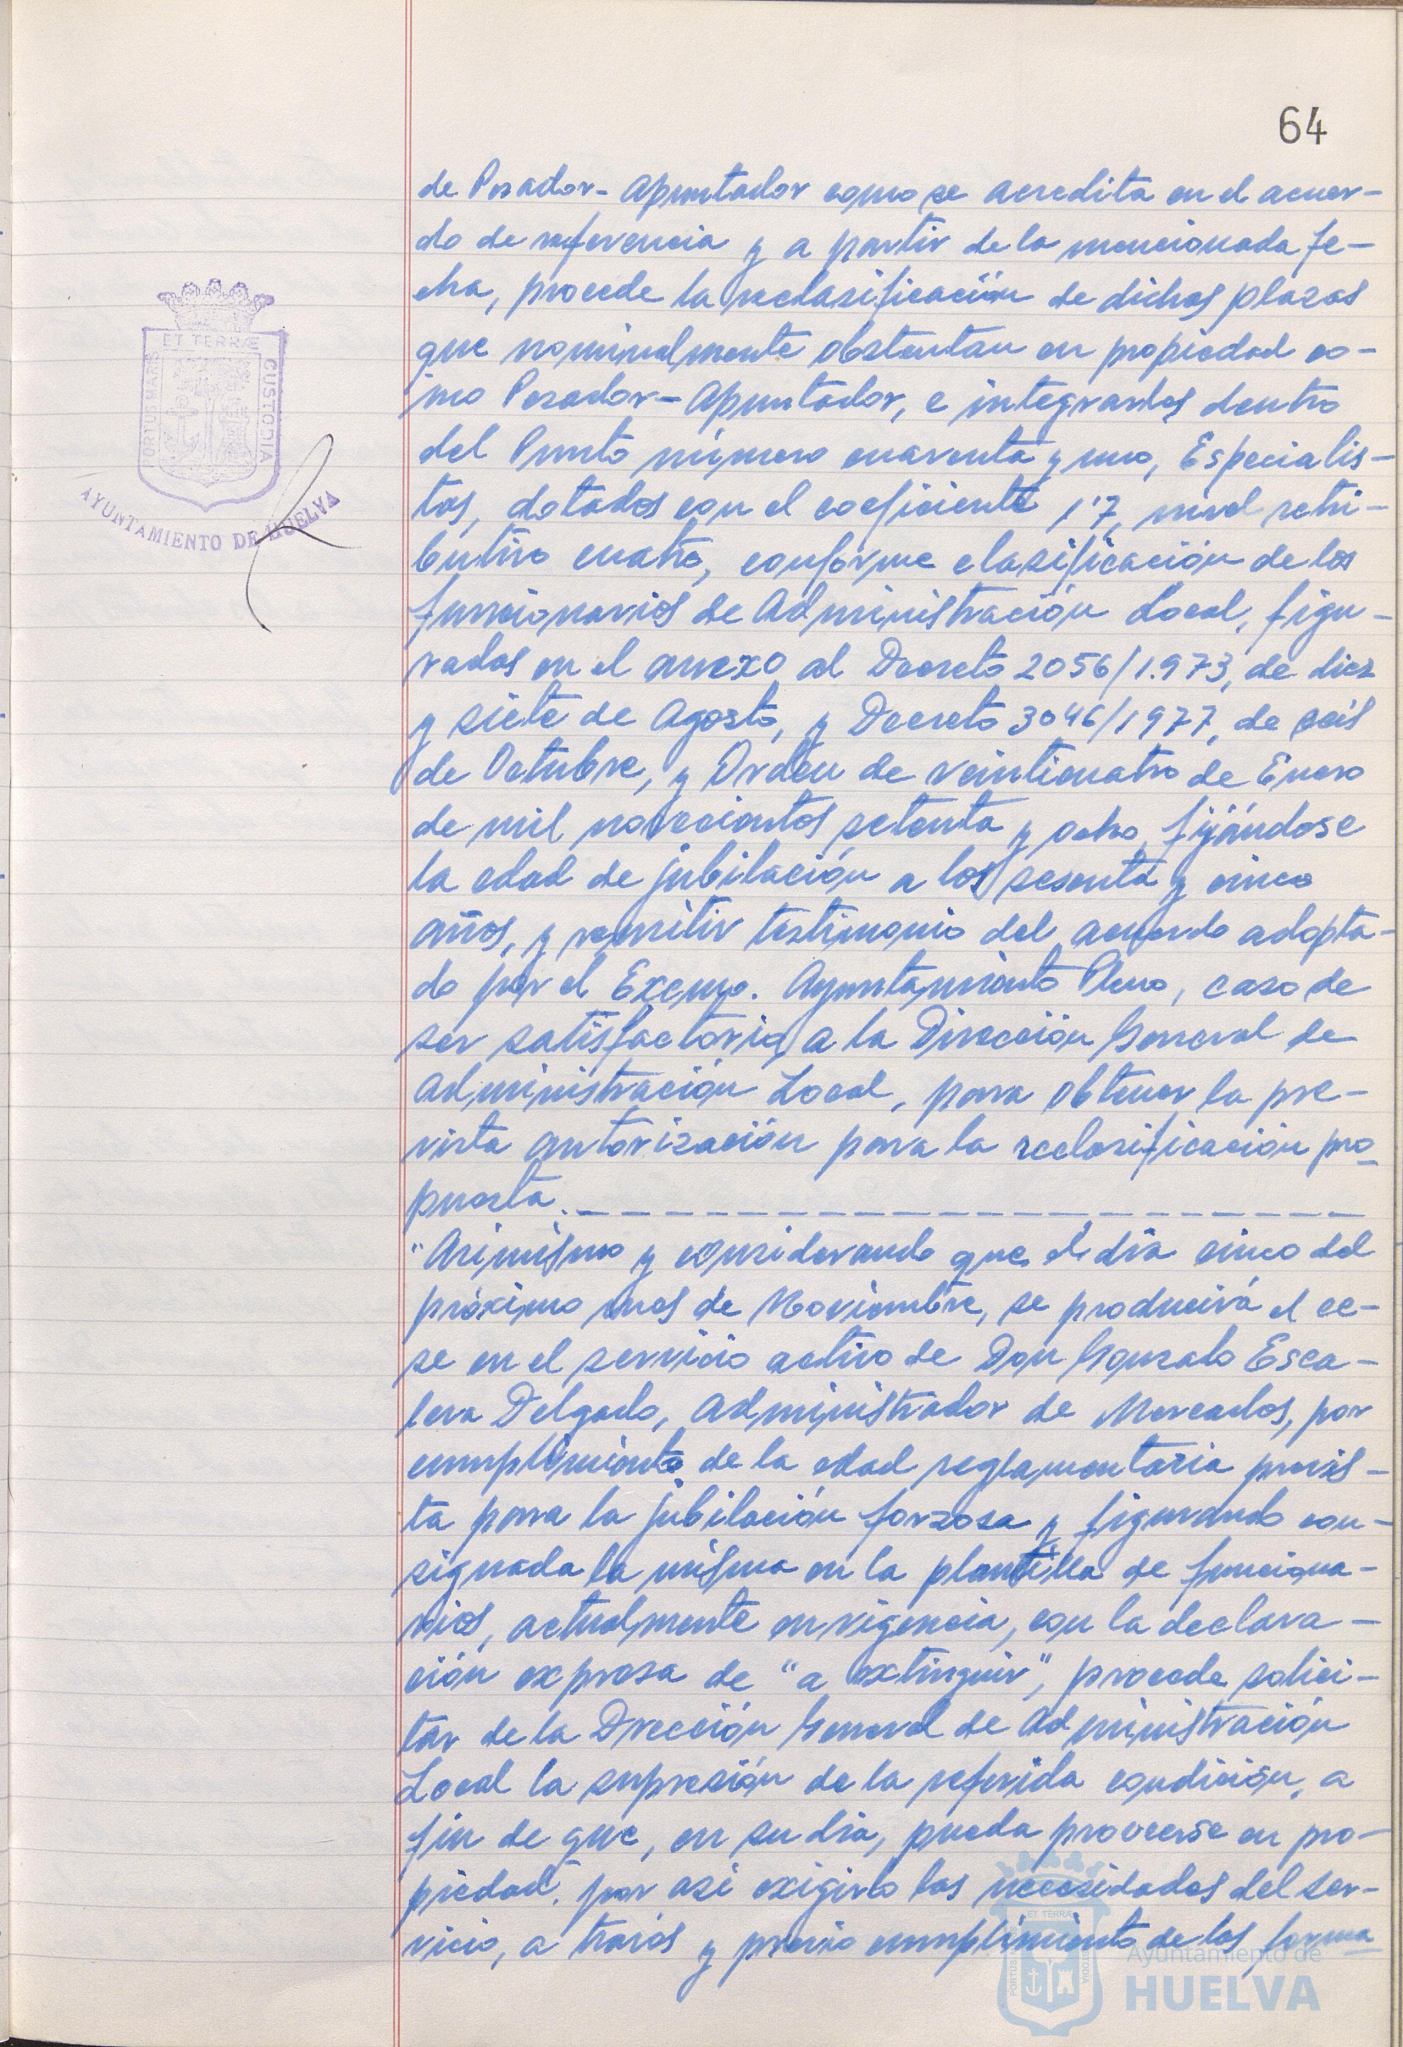 64
de Pesador-Apuntador como se acredita en el acuer-
do de referencia y a partir de la mencionada fe-
cha, procede la reclasificación de dichas plazas
que nominalmente obstentan en propiedad co-
mo Pesador-Apuntador, e integrarlos dentro
del Punto número cuarenta y uno, Especialis-
tas, dotados con el coeficiente 1'7, nivel retri-
butivo cuatro, conforme clasificación de los
funcionarios de Administración Local, figu-
rados en el anexo al Decreto 2056/1.973, de diez
y siete de Agosto, y Decreto 3046/1977, de seis
de Octubre, y Orden de veinticuatro de Enero
de mil novecientos setenta y ocho, fijándose
la edad de jubilación a los sesenta y cinco
años, y remitir testimonio del acuerdo adopta-
do por el Excmo. Ayuntamiento Pleno, caso de
ser satisfactorio, a la Dirección General de
Administración Local, para obtener la pre-
vista autorización para la reclasificación pro-
puesta.
"Asimismo y considerando que el día cinco del
próximo mes de Noviembre, se producirá el ce-
se en el servicio activo de Don Gonzalo Esca-
lera Delgado, Administrador de Mercados, por
cumplimiento de la edad reglamentaria previs-
ta para la jubilación forzosa y figurando con-
signada la misma en la plantilla de funciona-
rios, actualmente en vigencia, con la declara-
ción expresa de "a extinguir", procede solici-
tar de la Dirección General de Administración
Local la supresión de la referida condición, a
fin de que, en su día, pueda proveerse en pro-
piedad, por así exigirlo las necesidades del ser-
vicio, a través y previo cumplimiento de las forma
PORTUS MARIS
ET TERRÆ
CUSTODIA
AYUNTAMIENTO DE HUELVA
Ayuntamiento de
HUELVA